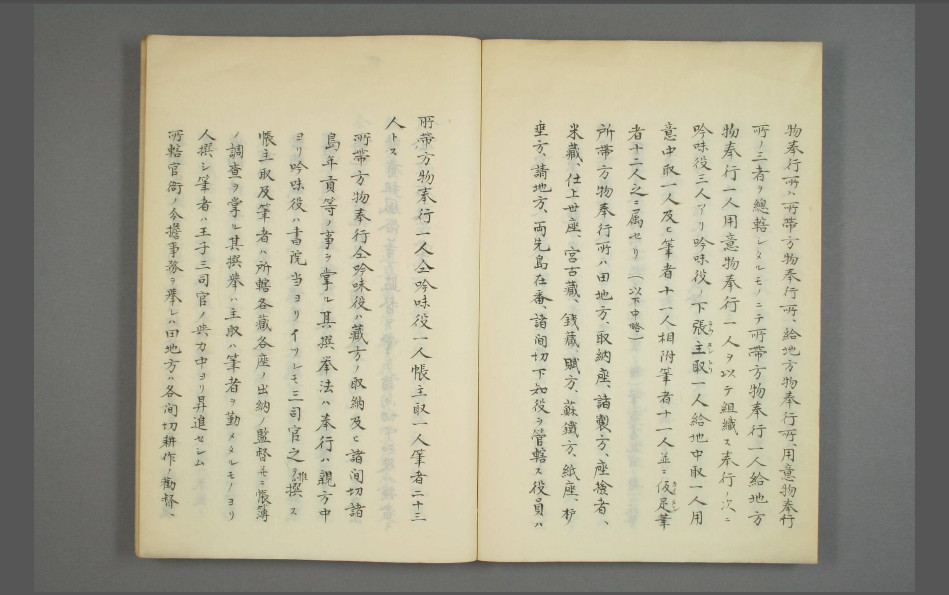 物奉行所ハ所帯方物奉行所、給地方物奉行所、用意物奉行
所ノ三者ヲ總轄シタルモノニテ所帯方物奉行一人給地方
物奉行一人用意物奉行一人ヲ以テ組織ス奉行ノ次ニ
吟味役三人アリ吟味役ノ下張主取一人給地中取一人用
意中取一人及ヒ筆者十一人相附筆者十一人並ニ仮足筆
者十二人之ニ属セリ(以下中略)
所帯方物奉行所ハ田地方、取納座、諸製方、座検者、
米蔵、仕上世座、宮古蔵、銭蔵、賦方、蘇鐵方、紙座、杣
垂方、請地方、両先島在番、諸間切下知役ヲ管轄ス役員ハ
所帯方物奉行一人仝吟味役一人帳主取一人筆者二十三
人トス
所帯方物奉行仝吟味役ハ蔵方ノ取納及ヒ諸間切諸
島年貢等ノ事ヲ掌ル其撰挙法ハ奉行ハ親方中
ヨリ吟味役ハ書院当ヨリイツレモ三司官之ヲ推撰ス
帳主取及筆者ハ所轄各蔵各座ノ出納ノ監督並ニ帳簿
ノ調査ヲ掌ル其撰挙ハ主取ハ筆者ヲ勤メタルモノヨリ
人撰シ筆者ハ王子三司官ノ与力中ヨリ昇進セシム
所轄官衙ノ分擔事務ヲ挙レハ田地方ハ各間切耕作ノ勸督、